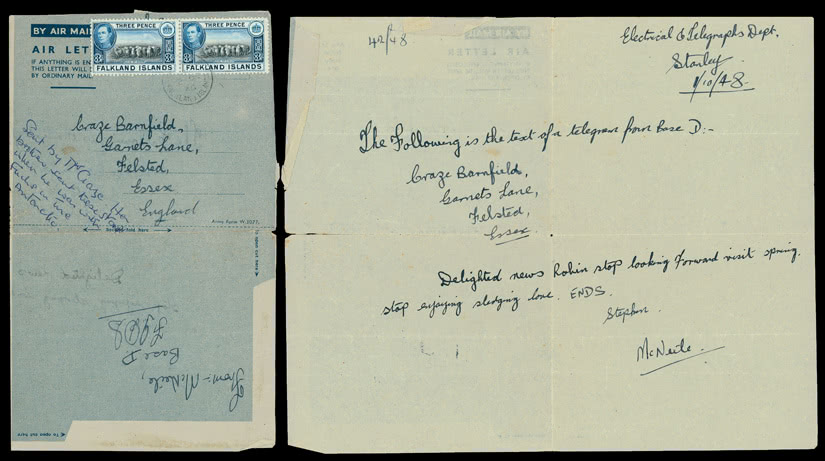 BY AIR MAIL
AIR LETTER
IF ANYTHING IS EN
THIS LETTER WILL
BY ORDINARY MAIL
THREE PENCE
3d
FALKLAND ISLANDS
THREE PENCE
3d
FALKLAND ISLANDS
Craze Barnfield,
Garnets Lane,
Felsted,
Essex
England
Sent by McCraze
when he was with
Fuchs in the
Antarctic.
Army Form W.3077.
Second fold here
To open cut here
From:- McNeile,
Base D
To open cut here
42/48
BY AIR MAIL
AIR LETTER
Electrical & Telegraphs Dept.
Stanley
1/10/48.
The Following is the text of a telegram from Base D:-
Craze Barnfield,
Garnets Lane,
Felsted,
Essex
Delighted news Robin stop looking forward visit spring.
stop enjoying sledging love. ENDS.
Stephen.
McNeile.